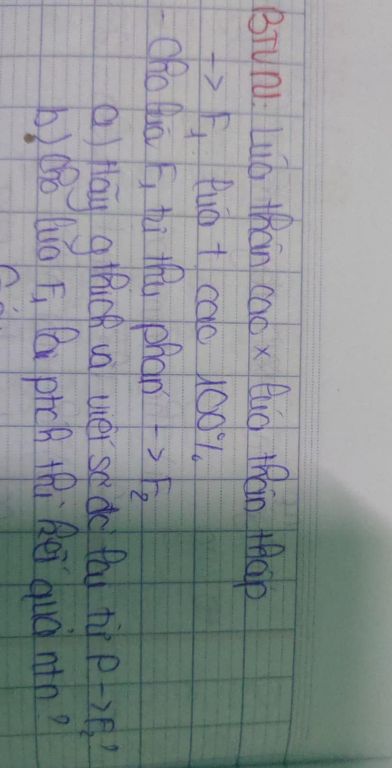 BTVN: Lúa thân cao x lúa thân thấp
-> F1 lúa t cao 100%
- Cho lúa F1 tự thụ phấn -> F2
a) Hãy g thích và viết sơ đồ lai từ P -> F2?
b) Cho lúa F1 lai ptch thì kết quả ntn?